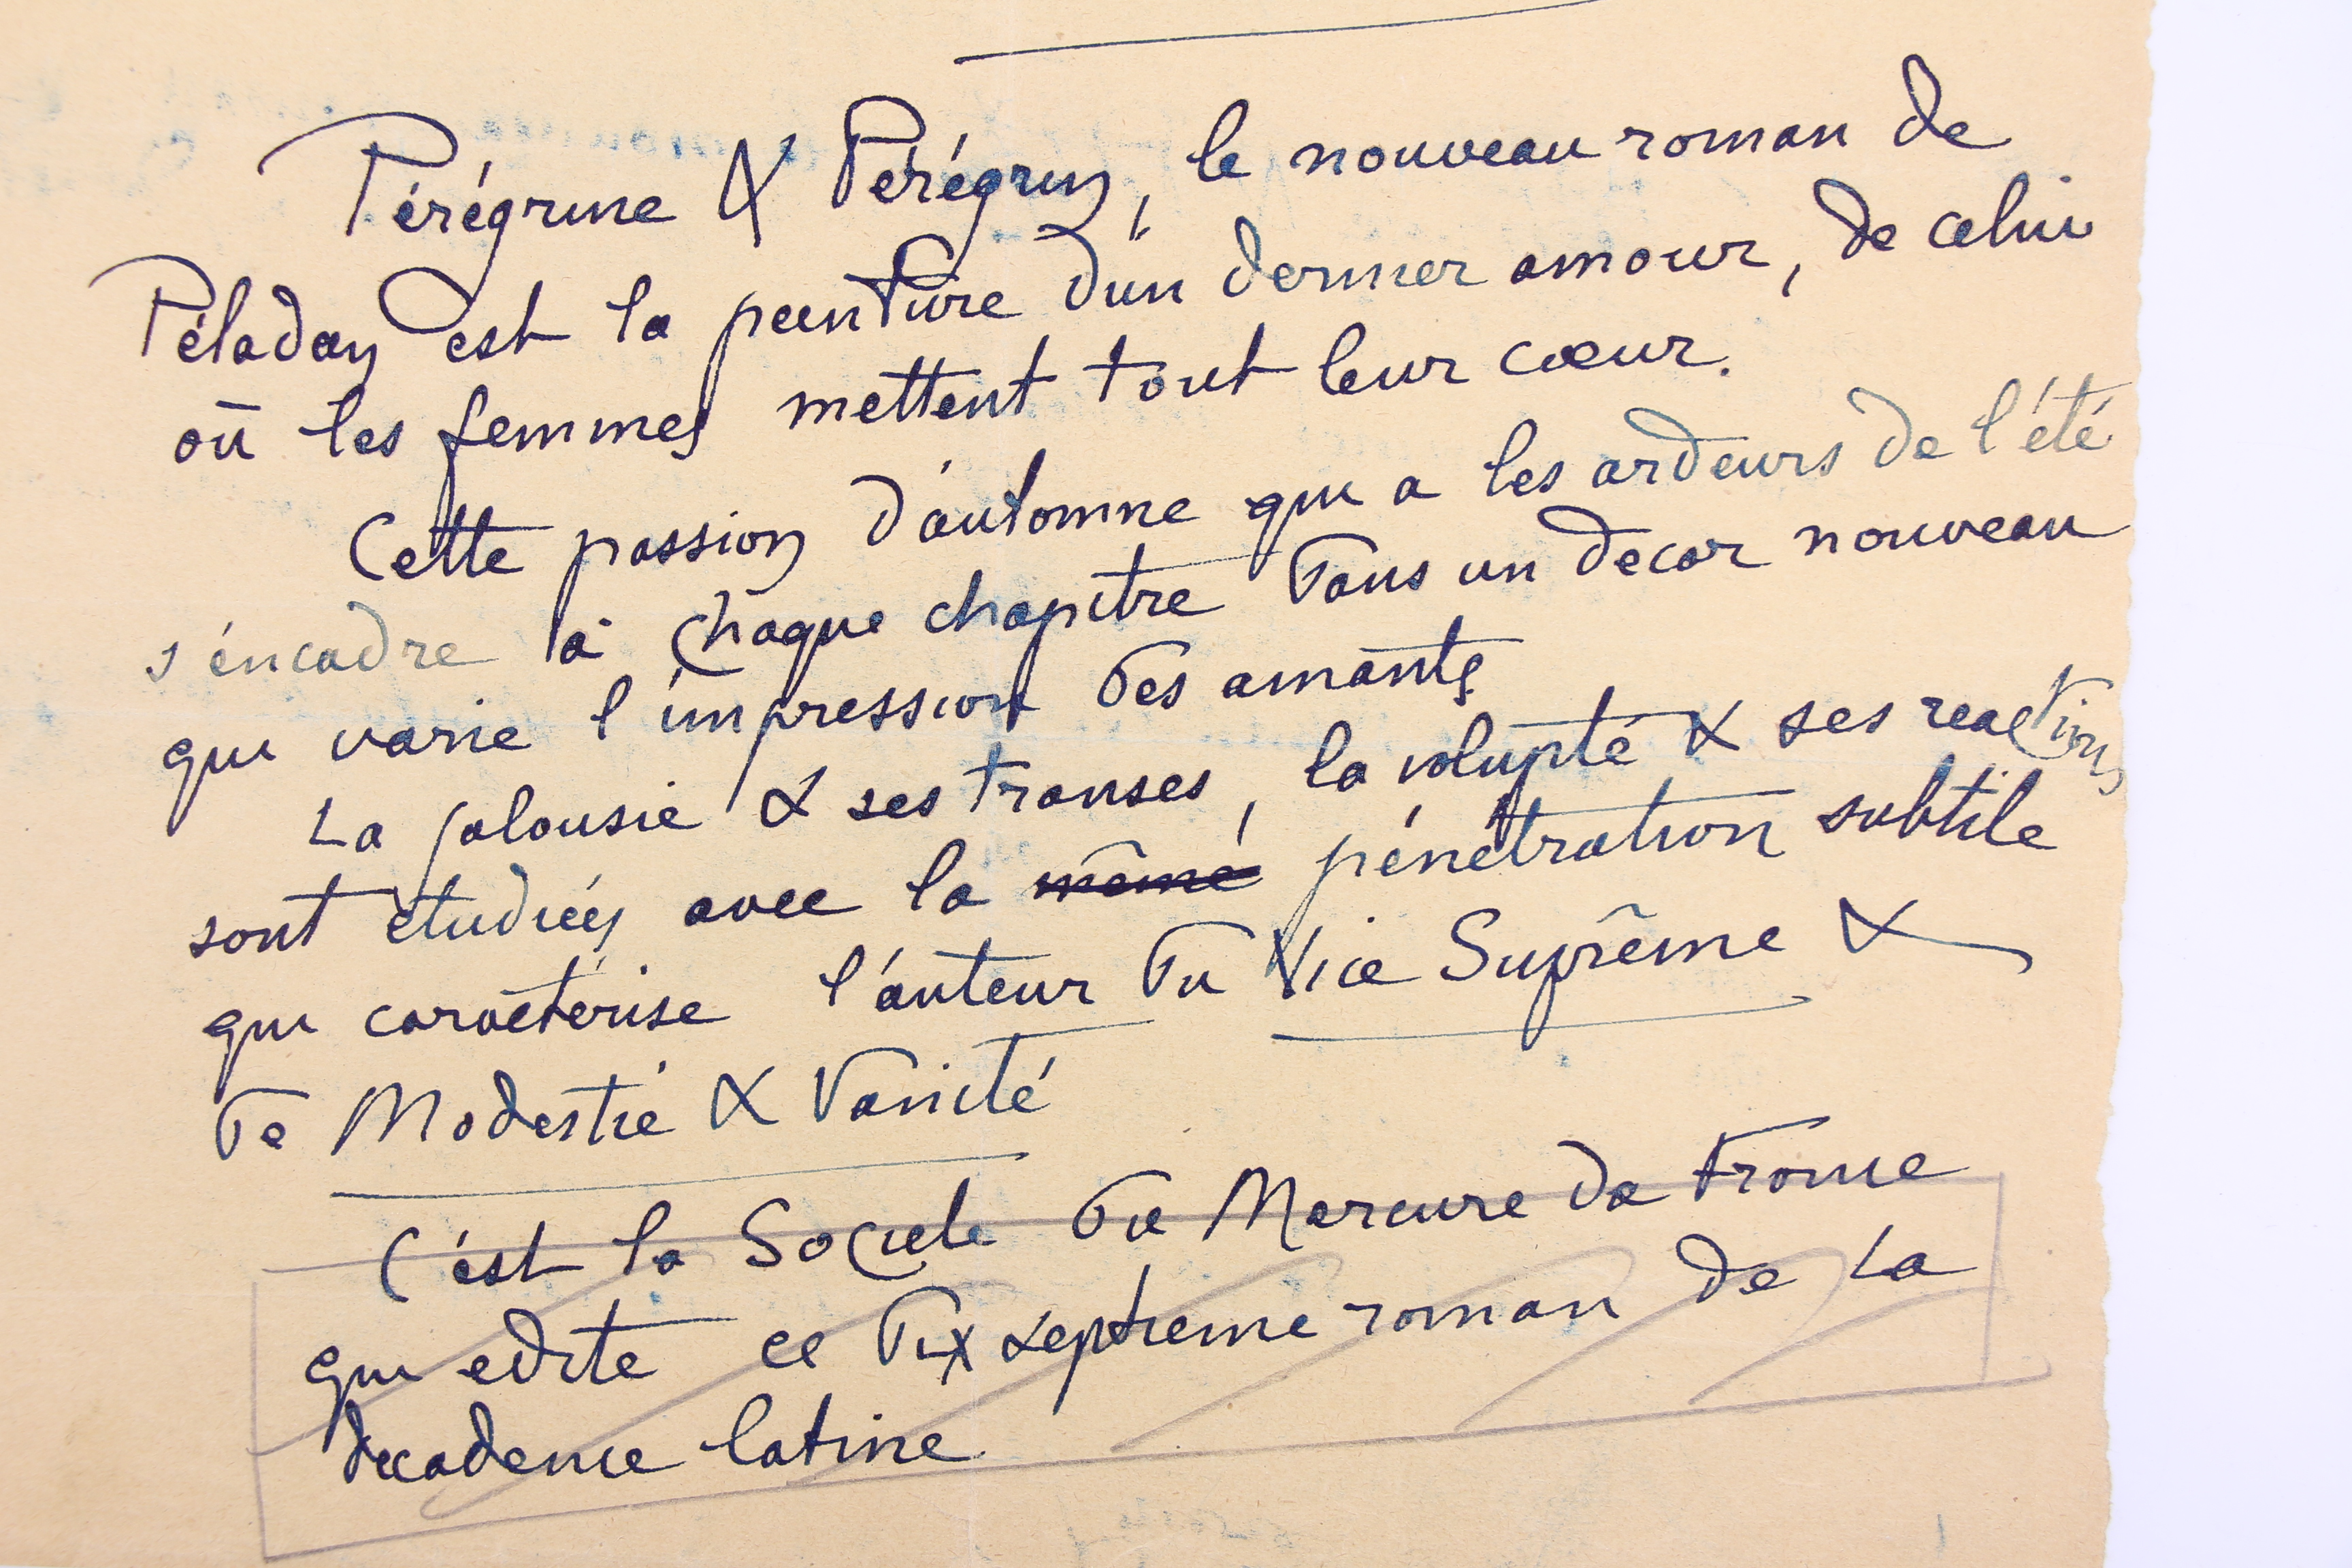 Pérégrine & Pérégrin, le nouveau roman de
Péladan est la peinture d'un dernier amour, de celui
où les femmes mettent tout leur cœur.
Cette passion d'automne qui a les ardeurs de l'été
s'encadre à chaque chapitre dans un decor nouveau
qui varie l'impression des amants
La jalousie & ses transes, la volupté & ses reactions
sont étudiées avec la même pénétration subtile
qui caractérise l'auteur du Vice Suprême &
de Modestie & Vanité
C'est la Societe du Mercure de France
qui edite ce dix septieme roman de La
decadence latine